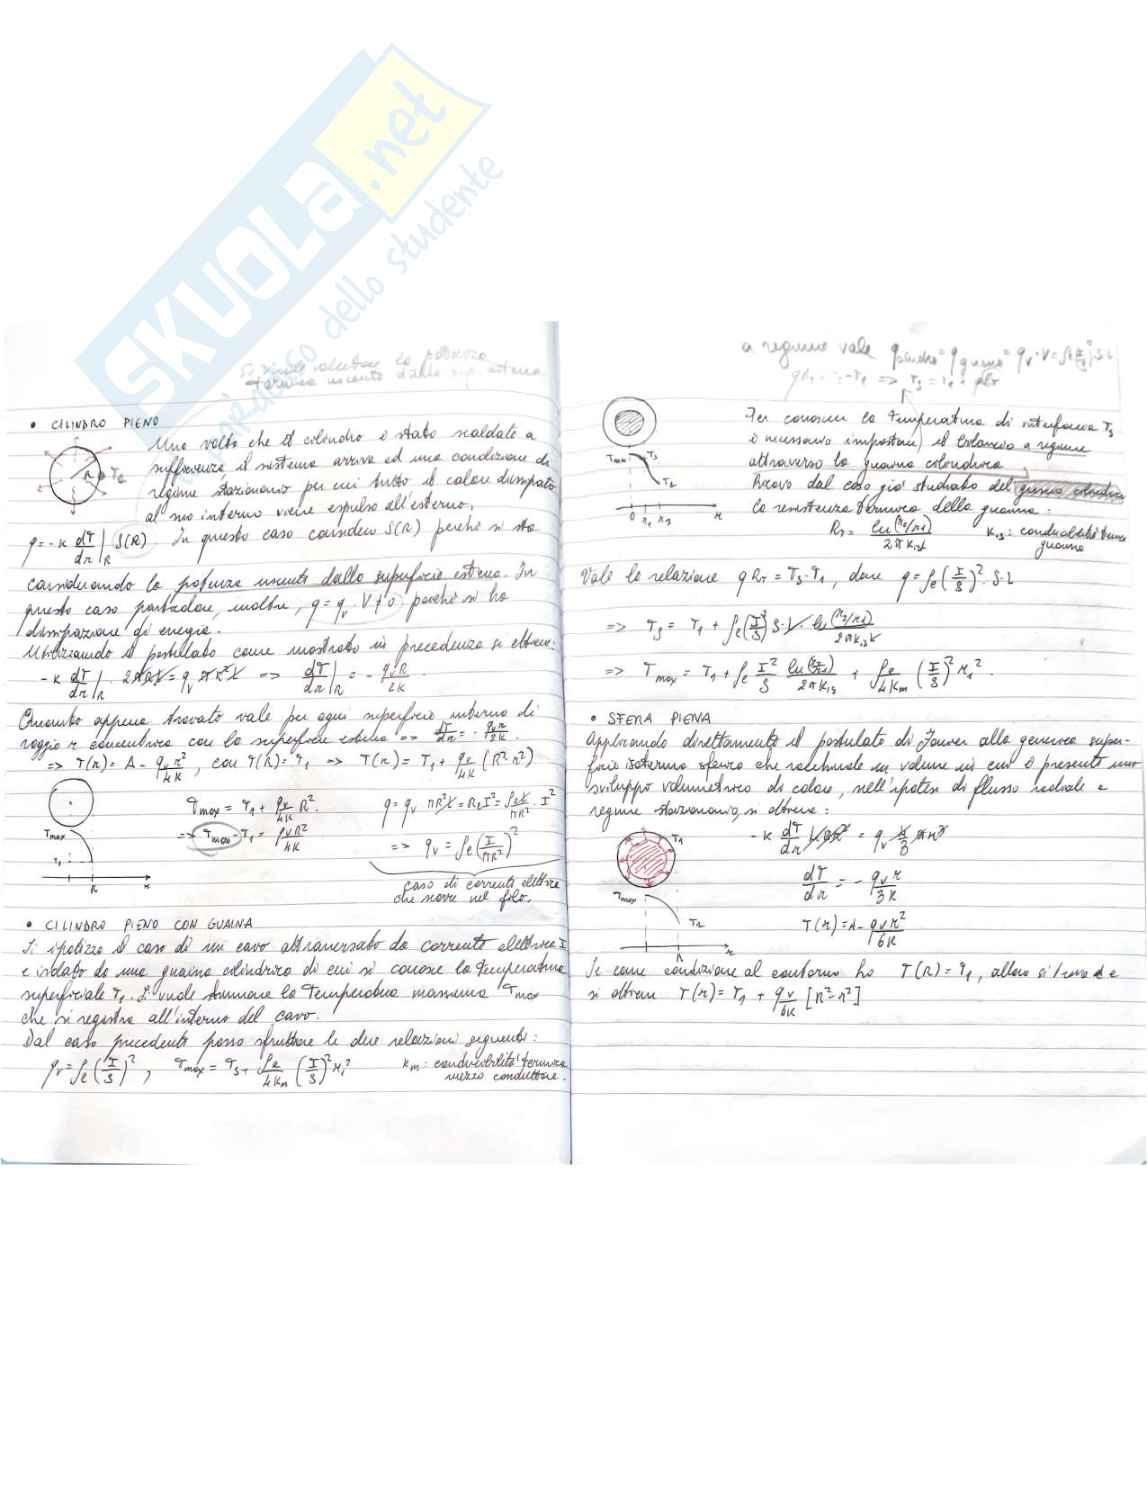 SKUOLA.net
dello studente
si vuole valutare la potenza
termica uscente dalla sup. esterna
• CILINDRO PIENO
Una volta che il cilindro è stato scaldato a
sufficienza, il sistema arriva ad una condizione di
regime stazionario per cui tutto il calore dissipato
al suo interno viene espulso all'esterno.
q = -k dT/dr|R S(R). In questo caso considero S(R) perché si sta
considerando la potenza uscente dalla superficie esterna. In
questo caso particolare, inoltre, q = qv V ≠ 0 perché si ha
dissipazione di energia.
Utilizzando il postulato come mostrato in precedenza si ottiene:
-k dT/dr|R · 2πRL = qv πR²L => dT/dr|R = - qvR/2k.
Quanto appena trovato vale per ogni superficie interna di
raggio r concentrica con la superficie esterna => dT/dr = - qvr/2k.
=> T(r) = A - qvr²/4k, con T(R) = T1 => T(r) = T1 + qv/4k (R²-r²)
Tmax = T1 + qv/4k R².
=> Tmax - T1 = qvR²/4k
q = qv πR²L = Re I² = ρeL/πR² · I²
=> qv = ρe(I/πR²)²
caso di corrente elettrica
che scorre nel filo.
Tmax
T1
R
r
• CILINDRO PIENO CON GUAINA
Si ipotizza il caso di un cavo attraversato da corrente elettrica I
e isolato da una guaina cilindrica di cui si conosce la temperatura
superficiale T1. Si vuole stimare la temperatura massima Tmax
che si registra all'interno del cavo.
Dal caso precedente posso sfruttare le due relazioni seguenti:
qv = ρe(I/S)², Tmax = Ts + ρe/4km (I/S)² r1²
km: conducibilità termica
mezzo conduttore.
a regime vale qcilindro = qguaina = qv·V = ρe(I/S)²·S·L
Per conoscere la temperatura di interfaccia Ts
è necessario impostare il bilancio a regime
attraverso la guaina cilindrica.
Ricavo dal caso già studiato del guscio cilindrico
la resistenza termica della guaina:
RT = ln(r2/r1)/2πkisL
kis: conducibilità termica
guaina
Tmax
Ts
T1
0 r1 r2 r
Vale la relazione q RT = Ts - T1, dove q = ρe(I/S)²·S·L
=> Ts = T1 + ρe(I/S)² S·L · ln(r2/r1)/2πkisL
=> Tmax = T1 + ρe I²/S ln(r2/r1)/2πkis + ρe/4km (I/S)² r1².
• SFERA PIENA
Applicando direttamente il postulato di Fourier alla generica super-
ficie isoterma sferica che racchiude un volume in cui è presente uno
sviluppo volumetrico di calore, nell'ipotesi di flusso radiale e
regime stazionario, si ottiene:
-k dT/dr 4πr² = qv 4/3 πr³
dT/dr = - qvr/3k
T(r) = A - qvr²/6k
T1
Tmax
T1
R
r
Se come condizione al contorno ho T(R) = T1, allora si trova A e
si ottiene T(r) = T1 + qv/6k [R²-r²]